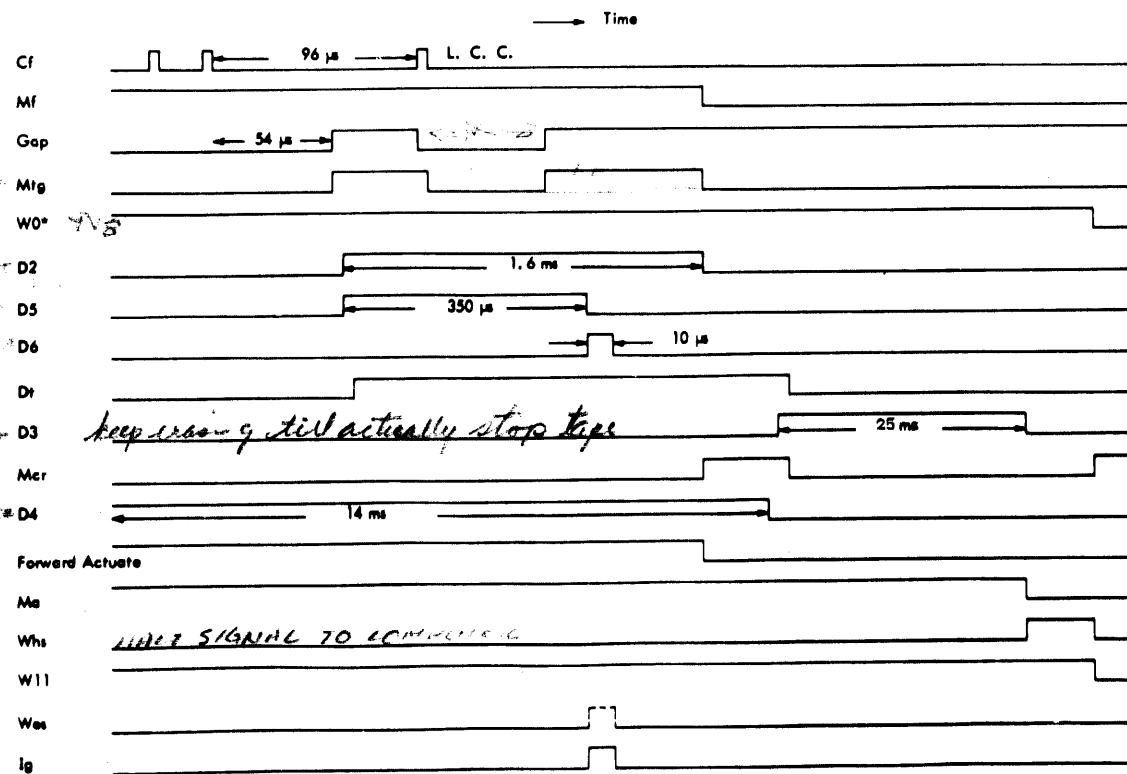 Time
Cf 96 μs L. C. C.
Mf
Gap 54 μs
Mtg
W0*
D2 1.6 ms
D5 350 μs
D6 10 μs
Dt
D3 keep erasing till actually stop tape 25 ms
Mcr
D4 14 ms
Forward Actuate
Ma
Whs HALT SIGNAL TO COMPUTER
W11
Wes
Ig